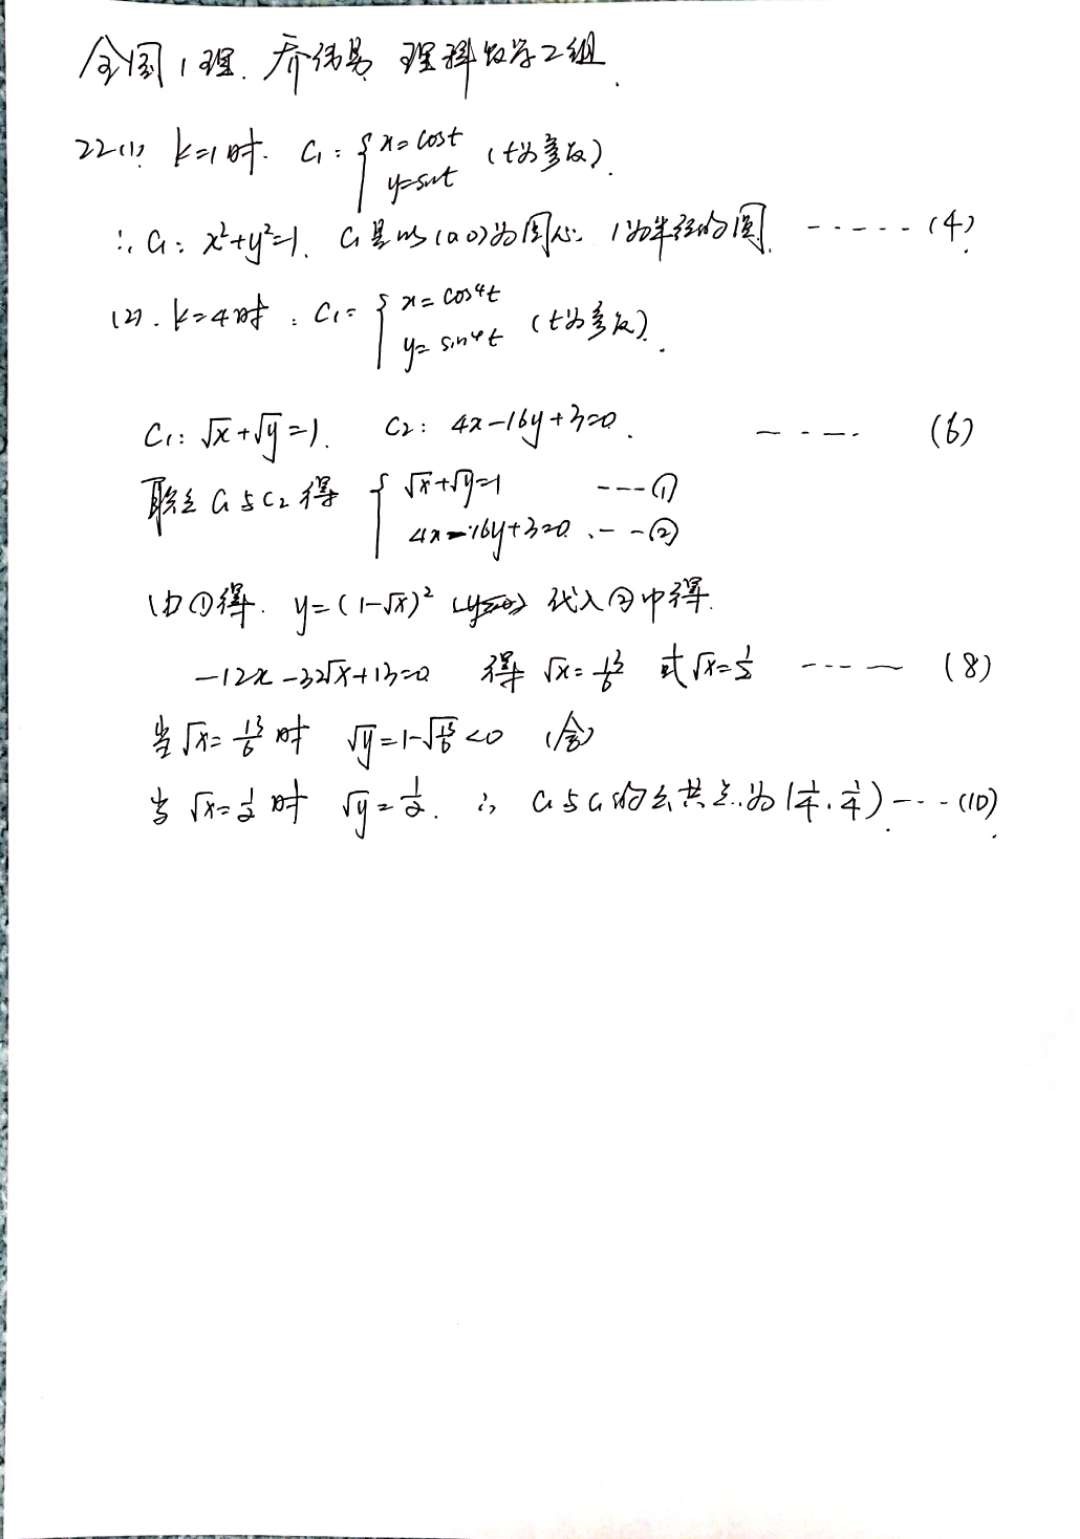 全国1理. 乔伟易 理科数学2组.
22(1) k=1时. C₁: { x=cost y=sint (t为参数).
∴ C₁: x²+y²=1. C₁是以(0,0)为圆心. 1为半径的圆. ------(4)
(2). k=4时: C₁= { x=cos⁴t y=sin⁴t (t为参数).
C₁: √x+√y=1. C₂: 4x-16y+3=0. ----. (6)
联立C₁与C₂得 { √x+√y=1 ---①
4x-16y+3=0. --②
由①得. y=(1-√x)² 代入②中得.
-12x-32√x+13=0 得 √x=13/6 或√x=1/2 ---- (8)
当√x=13/6时 √y=1-√13/6<0 (舍)
当√x=1/2时 √y=1/2. ∴ C₁与C₁的公共点为(1/4,1/4)---(10)